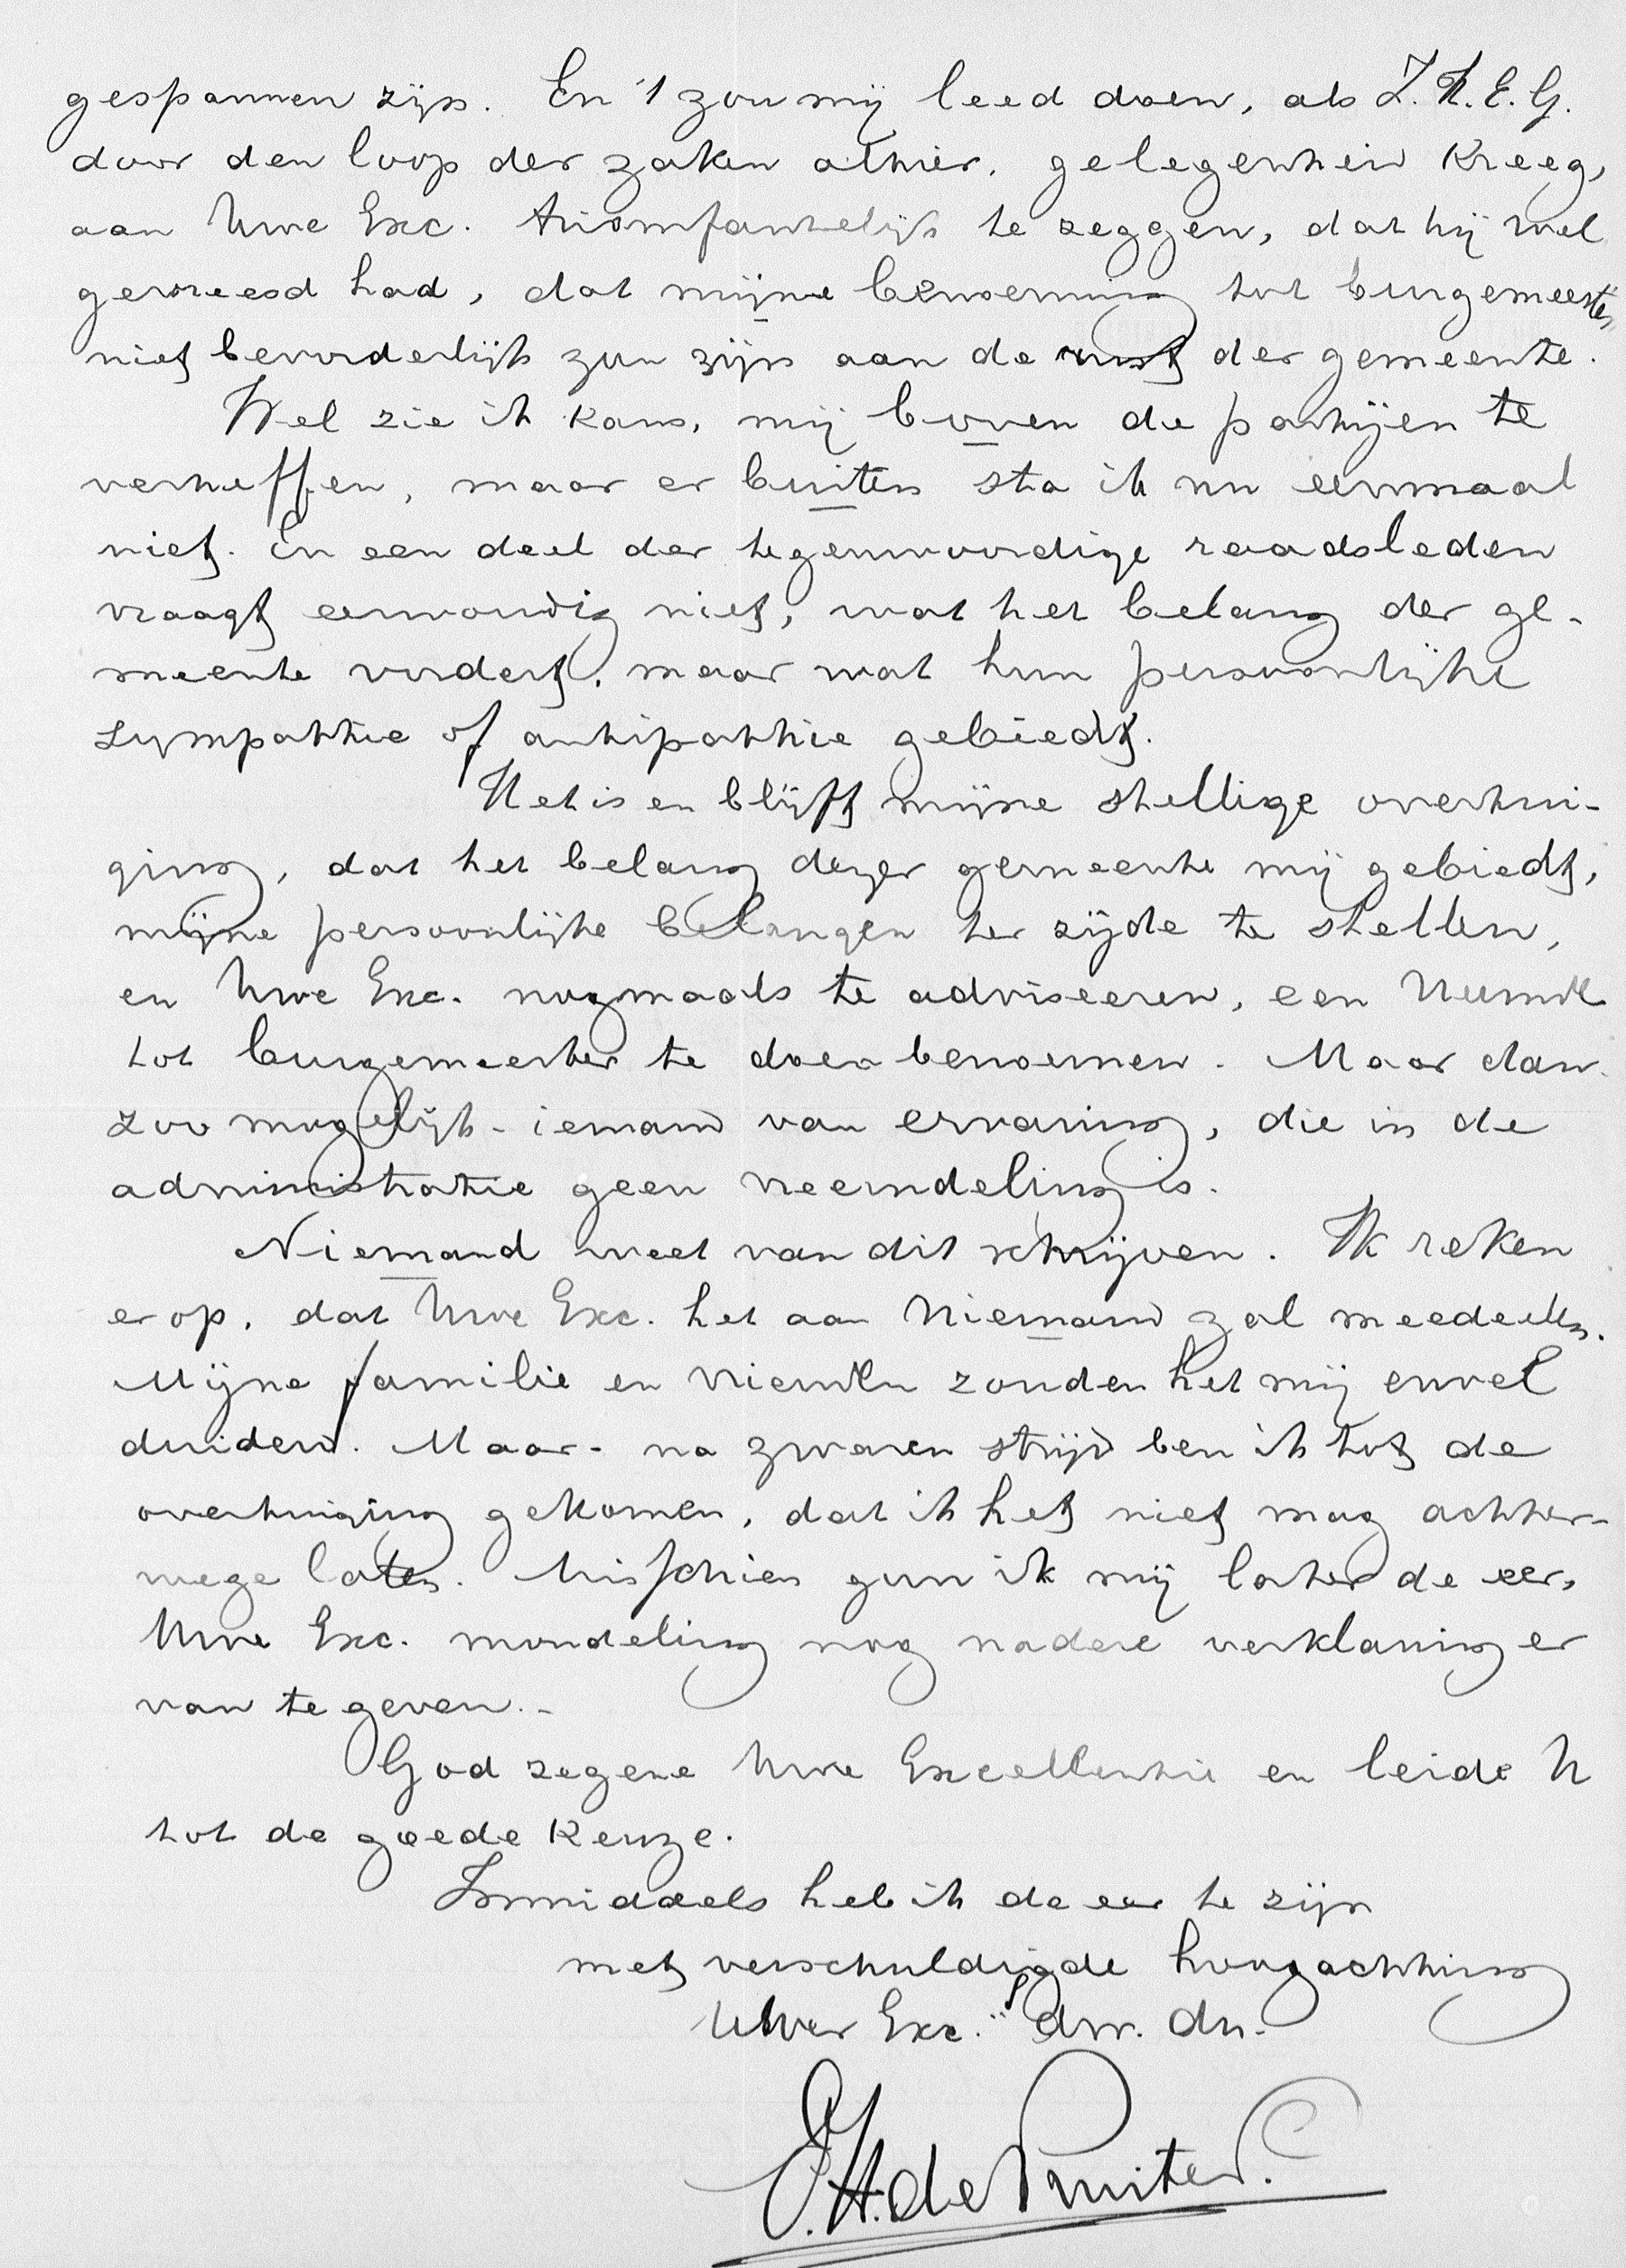 gespannen zijn. En 't zou mij leed doen, als Z.H.E.G.
door den loop der zaken alhier, gelegenheid kreeg,
aan Uwe Exc. triomfantelijk te zeggen, dat hij wel
gevreesd had, dat mijne benoeming tot burgemeester
niet bevorderlijk zou zijn aan de rust der gemeente.
Wel zie ik kans, mij boven de partijen te
verheffen, maar er buiten sta ik nu eenmaal
niet. En een deel der tegenwoordige raadsleden
vraagt eenvoudig niet, wat het belang der ge-
meente vordert, maar wat hun persoonlijke
sympathie of antipathie gebiedt.
Het is en blijft mijne stellige overtui-
ging, dat het belang dezer gemeente mij gebiedt,
mijne persoonlijke belangen ter zijde te stellen,
en Uwe Exc. nogmaals te adviseeren, een
tot burgemeester te doen benoemen. Maar dan
zoo mogelijk - iemand van ervaring, die in de
administratie geen vreemdeling is.
Niemand weet van dit schrijven. Ik reken
er op, dat Uwe Exc. het aan Niemand zal meedeelen.
Mijne familie en vrienden zouden het mij euvel
duiden. Maar - na zwaren strijd ben ik tot de
overtuiging gekomen, dat ik het niet mag achter-
wege laten. Misschien gun ik mij later de eer,
Uwe Exc. mondeling nog nadere verklaring er
van te geven. -
God zegene Uwe Excellentie en leide U
tot de goede keuze.
Inmiddels heb ik de eer te zijn
met verschuldigde hoogachting
Uwer Exc.'s dw. dn.
J.H. de Ruiter.